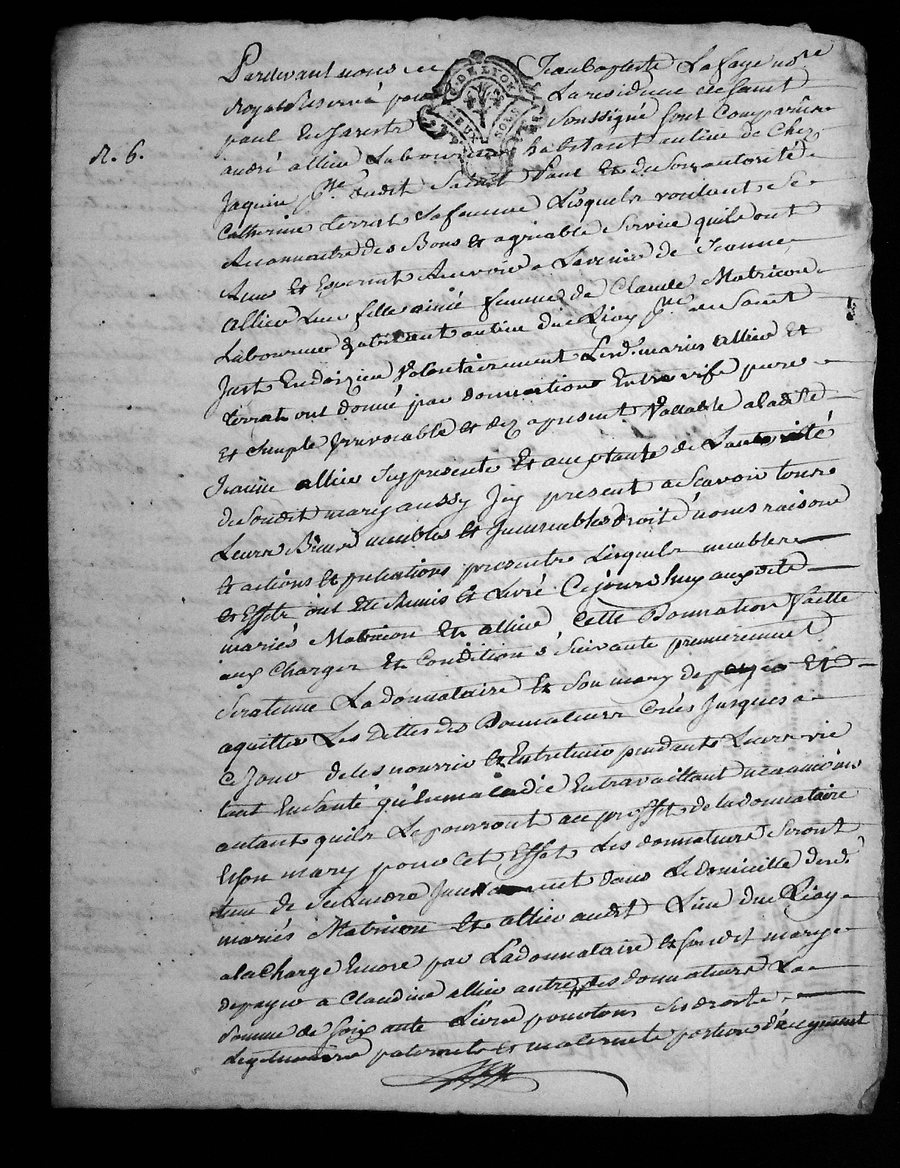 Pardevant nous Jean Baptiste Lafaye nore
Royal Reservé pour La residence de Saint
G. DE LYON
DEUX SOLS
paul En Jarest Soussigné font Comparus
n. 6.
andré allieu Laboureur habitant au lieu de Chez
Jaquin psse dudit Saint Paul et de son autorité
Catherine terrat Sa femme Lesquels voulant Se
Reconnoitre des Bons et agreable Service quils ont
Reçu et Esperent Recevoir a Lavenir de Jeanne
allieu Leur fille ainée femme de Claude Matricon
Laboureur habitant au lieu du Rioy psse de Saint
Just En doizieu Volontairement Lesd maries allieu et
terrat ont donné par donnation Entre vifs pure
et Simple Irrevocable et dez apresent Vallable a ladite
Jeanne allieu Icy presente Et acceptante de L'autorité
de Sondit mary aussy Icy present a Scavoir tous
Leurs Biens meubles et Immeubles droits noms raisons
et actions et pretentions presents Lesquels meubles
et Effets ont été Remis et Livré Ce jourdhuy auxdits
mariés Matricon et allieu Cette Donnation faitte
aux Charges Et Conditions Suivante premierement
Sera tenue La donnataire et Son mary de payer Et
aquitter Les dettes des Donnateurs Crées Jusques a
Ce Jour de les nourrir et Entretenir pendant Leurs vie
tant En Santé qu'En maladie En travaillant neanmoins
autant quils Le pourront au proffit de la donnataire
et Son mary pour cet Effet Les donnateurs Seront
tenu de Se Rendre dans Le domicille desd
mariés Matricon et allieu audit Lieu du Rioy
a la Charge Encore par La donnataire et Sondit mary
de payer a Claudine allieu autre des donnateurs La
Somme de Soixante Livre pour tous Ses droits
Legitimaire paternels et maternels portion d'augment